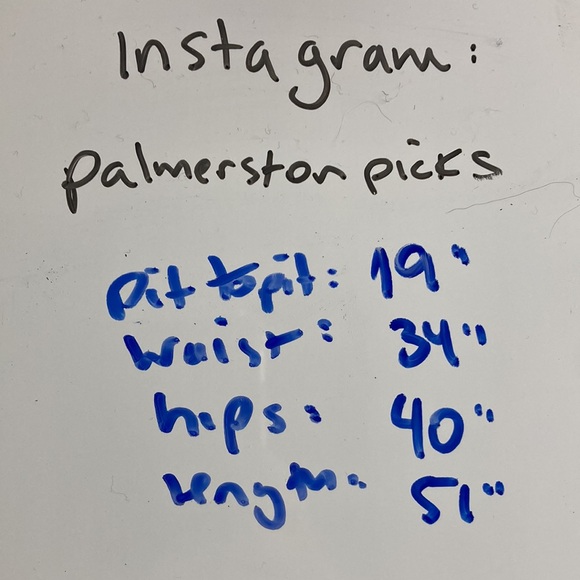 Instagram:
palmerston picks
pit to pit: 19"
waist: 34"
hips: 40"
length: 51"